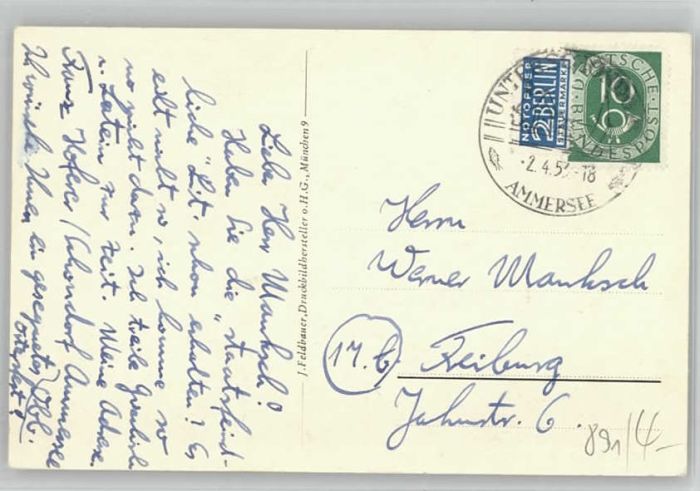 Lieber Herr Manksch!
Haben Sie die "staatsfeind-
liche" Lit. schon erhalten? Es
eilt nicht so, ich komme so
u. Latein zur Zeit. Meine Adresse:
Franz Hofer / Schondorf Ammersee
Ich wünsche Ihnen ein gesegnetes Obb.
Osterfest!
J. Feldbauer, Druckbildhersteller o.H.G., München 9
NOTOPFER
2 BERLIN
STEUERMARKE
DEUTSCHE
BUNDESPOST
10
-2.4.52-18
AMMERSEE
Herrn
Werner Manksch
17.b Freiburg
Jahnstr. 6.
891/4-